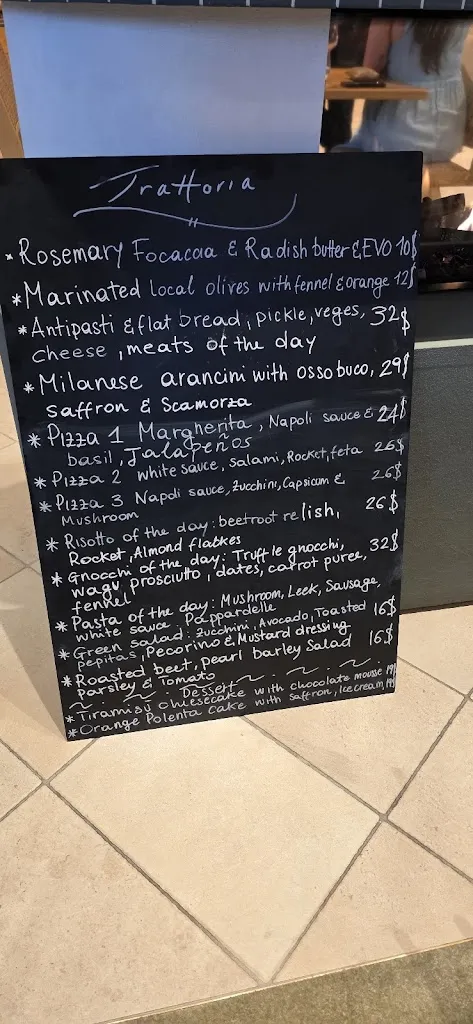 Trattoria
* Rosemary Focacaa & Radish butter & EVO 10$
* Marinated local olives with fennel & orange 12$
* Antipasti & flat bread, pickle, veges, 32$
cheese, meats of the day
* Milanese arancini with osso buco, 29$
saffron & Scamorza
* Pizza 1 Margherita, Napoli sauce & 24$
basil, Jalapeños
* Pizza 2 white sauce, salami, Rocket, feta 26$
* Pizza 3 Napoli sauce, Zucchini, Capsicum & 26$
Mushroom
* Risotto of the day: beetroot relish, 26$
Rocket, Almond flabkes
* Gnocchi of the day: Truffle gnocchi, 32$
wagu prosciutto, dates, carrot puree,
fennel
* Pasta of the day: Mushroom, Leek, Sausage,
white sauce Pappardelle
* Green salad: Zucchini, Avocado, Toasted 16$
pepitas, Pecorino & Mustard dressing
* Roasted beet, pearl barley Salad 16$
Parsley & Tomato
~ ~ ~ ~ Dessert ~ ~ ~ ~
* Tiramisu cheesecake with chocolate mousse
* Orange Polenta cake with saffron, Ice cream,